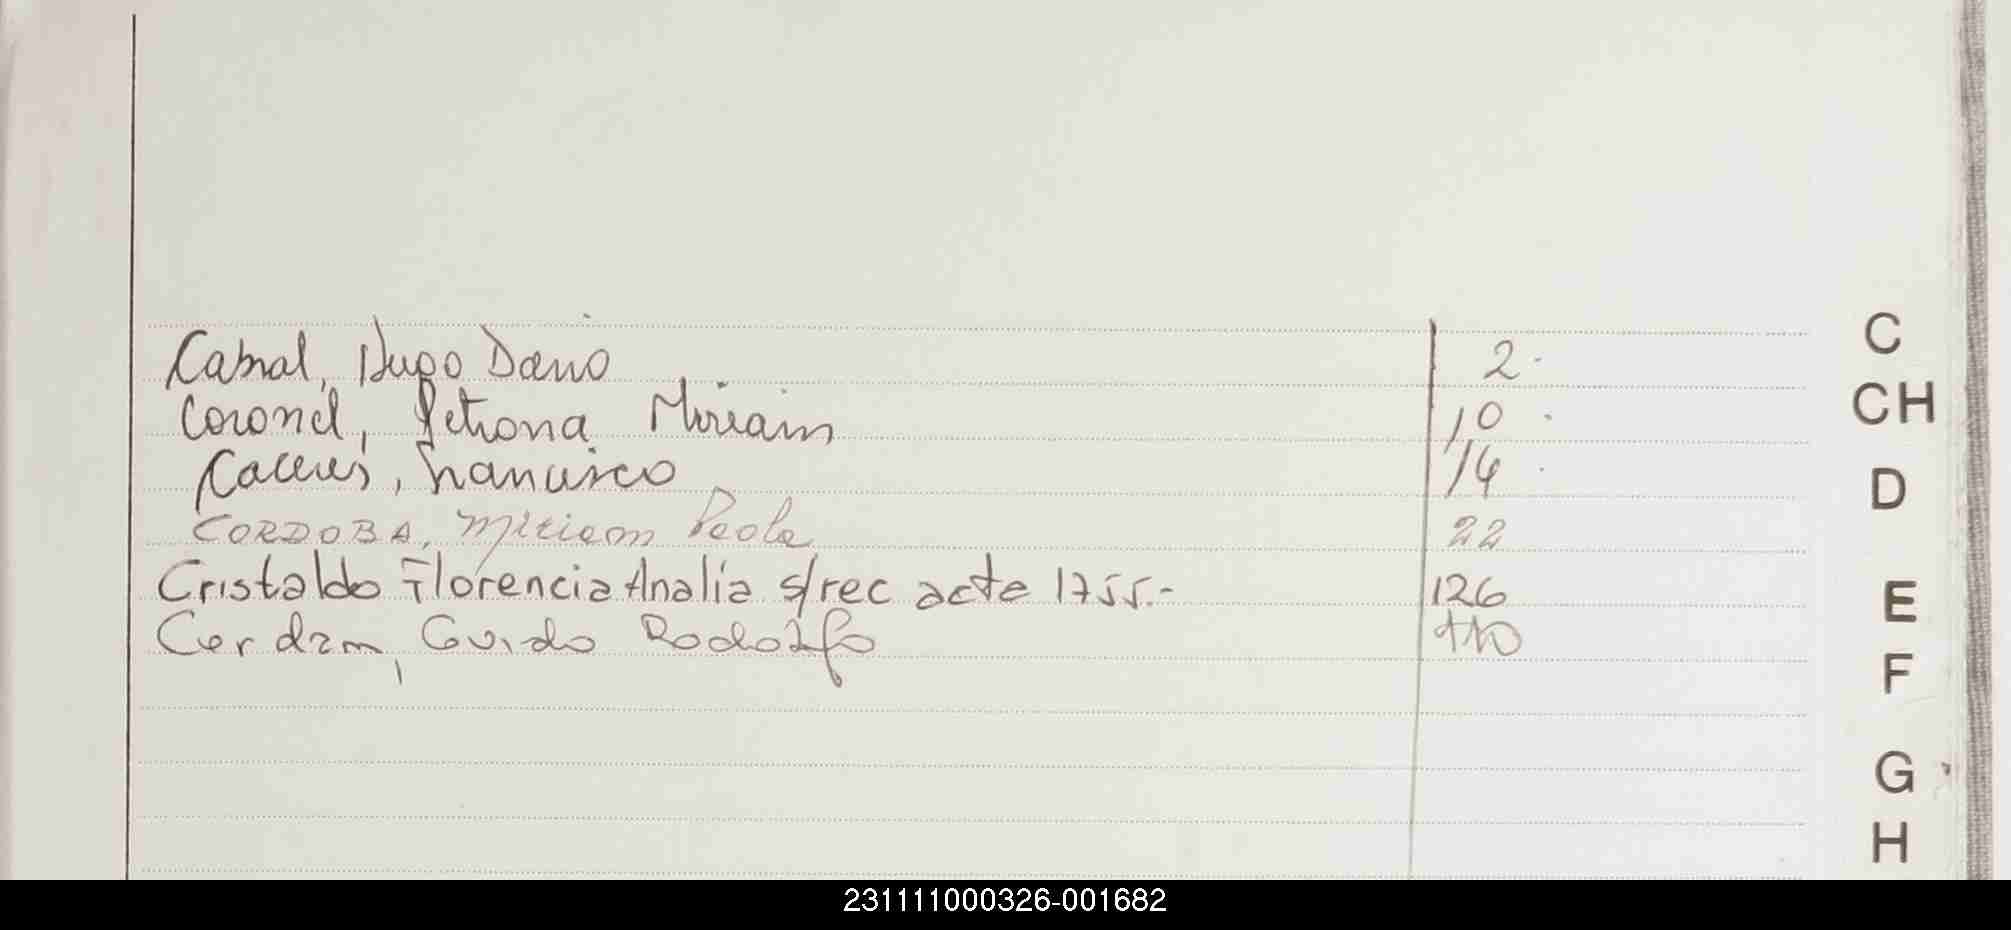 Cabral, Hugo Dario 2.
Coronel, Petrona Miriam 10.
Caceres, Francisco 14.
CORDOBA, Miriam Paola 22
Cristaldo Florencia Analia s/rec acta 1755.- 126
Cerdan, Guido Rodolfo
C
CH
D
E
F
G
H
231111000326-001682